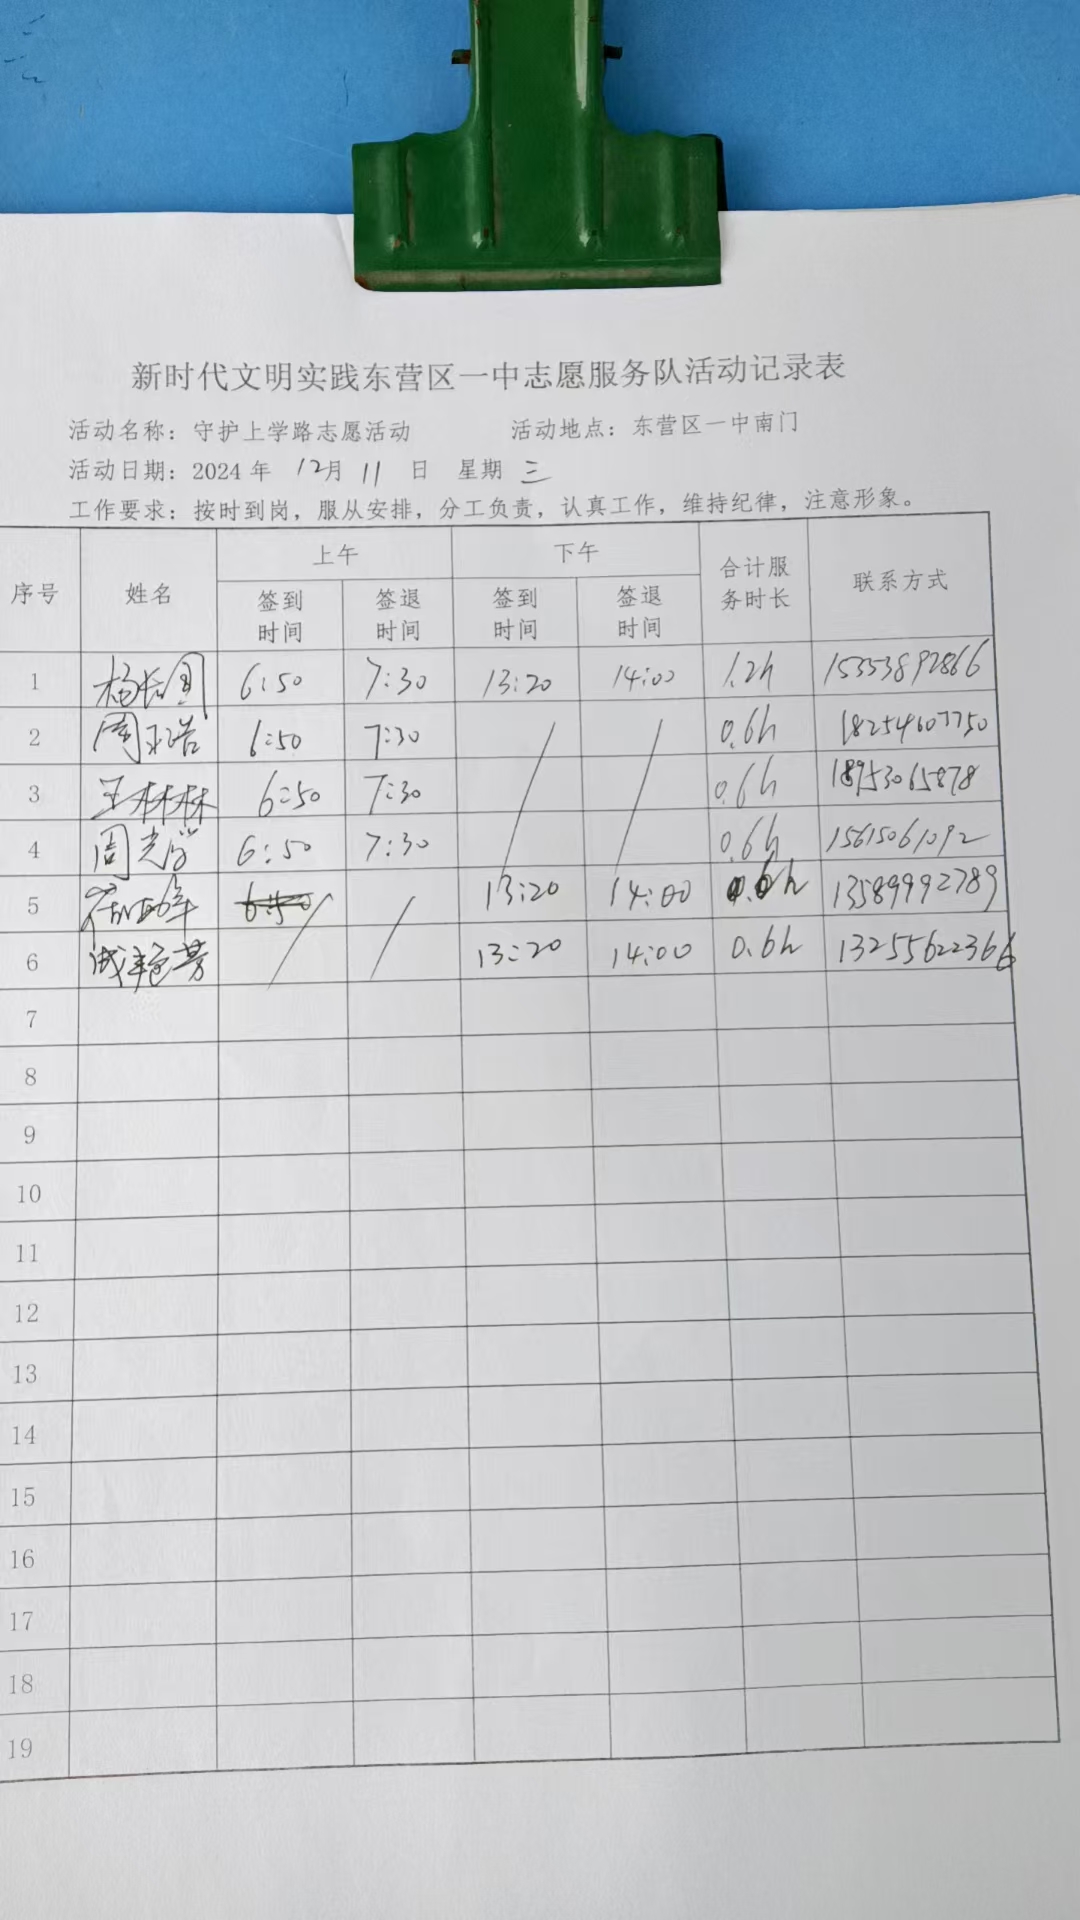 新时代文明实践东营区一中志愿服务队活动记录表
活动名称：守护上学路志愿活动 活动地点：东营区一中南门
活动日期：2024年 12月 11 日 星期 三
工作要求：按时到岗，服从安排，分工负责，认真工作，维持纪律，注意形象。
序号 姓名 上午 下午 合计服务时长 联系方式
签到时间 签退时间 签到时间 签退时间
1 杨长国 6:50 7:30 13:20 14:00 1.2h 15353892866
2 周 6:50 7:30 / / 0.6h 18254607750
3 王林林 6:50 7:30 0.6h 18953065878
4 周光学 6:50 7:30 0.6h 15615061092
5 6:50 / 13:20 14:00 0.6h 13589992789
6 成艳芳 / 13:20 14:00 0.6h 13255622366
7
8
9
10
11
12
13
14
15
16
17
18
19